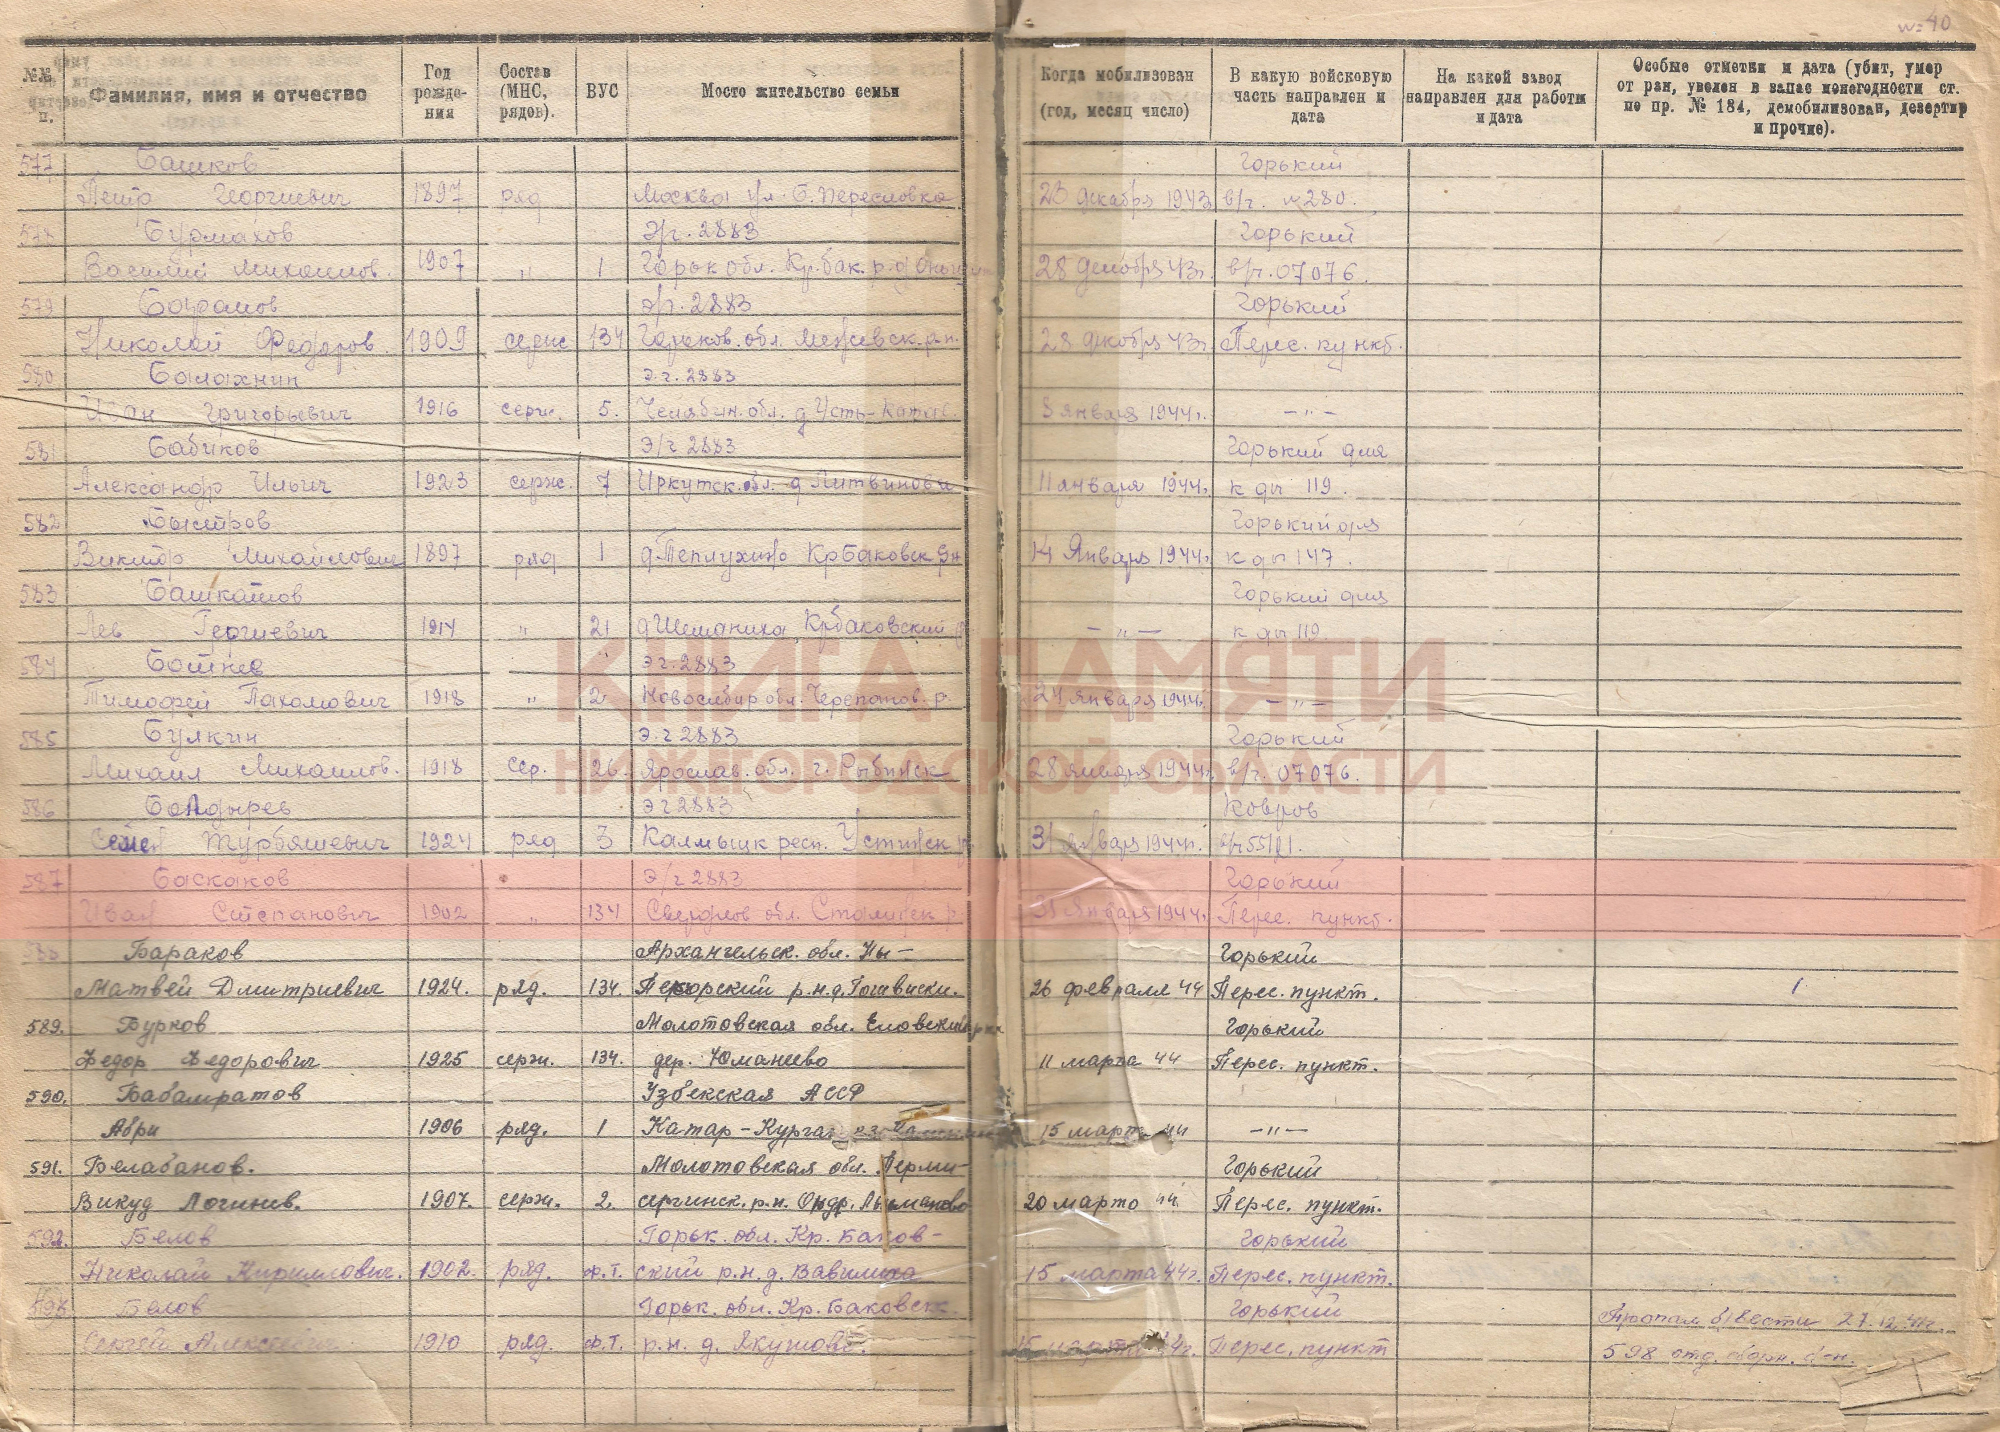 № 40
№№ п. п. Фамилия, имя и отчество Год рожде- ния Состав (МНС, рядов). ВУС Место жительство семьи Когда мобилизован (год, месяц число) В какую войсковую часть направлен и дата На какой завод направлен для работы и дата Особые отметки и дата (убит, умер от ран, уволен в запас по негодности ст. по пр. № 184, демобилизован, дезертир и прочие).
577 Башков Горький
Петр Георгиевич 1897 ряд Москва ул. Б. Переславка 23 декабря 1943 в/ч. №280.
578 Бурмахов Э/г. 2883 Горький
Василий Михайлов. 1907 " 1 Горьк обл. Кр. бак. р. д 28 декабря 43г. в/ч. 07076
579 э/г. 2883 Горький
Николай Федоров. 1909 серж 134 Горьков. обл. р-н. 28 декабря 43г. Перес. пункт.
580 Балахнин э.г. 2883
Иван Григорьевич 1916 серж. 5. Челябин. обл. д Усть-Катав. 3 января 1944г. — " —
581 Бабиков Э/г 2883 Горький для
Александр Ильич 1923 серж. 7 Иркутск. обл. д Литвинова 11 января 1944г. к ды 119.
582 Быстров Горький для
Виктор Михайлович 1897 ряд 1 д. Теплухино Крбаковск рн 14 Января 1944г. к ды 147.
583 Башкатов Горький для
Лев Гергиевич 1914 " 21 д Шеманиха Крбаковский р — " — к ды 119
584 э г. 2883
Тимофей Пахомович 1918 " 2 Новосибир обл. Черепанов. р 24 января 1944г. — " —
585 Булкин э. г 2883 Горький
Михаил Михаилов. 1918 сер. 26. Ярослав. обл. г. Рыбинск 28 января 1944г. в/ч. 07076.
586 Бондырев э г 2883 Ковров
1924 ряд 3 Калмыцк респ. 31 января 1944г.
587 Баскаков Э/г 2883 Горький
Иван Степанович 1902 " 134 Свердлов обл. Сталинск р. 31 января 1944г. Перес. пункт.
588 Бараков Архангельск. обл. Ны — Горький
Матвей Дмитриевич 1924. ряд. 134. р.н.д. 26 февраля 44 Перес. пункт.
589. Бурков Молотовская обл. Еловский Горький
Федор Федорович 1925 серж. 134. дер. Юманеево 11 марта 44 Перес. пункт.
590. Бабамратов Узбекская АССР
Абри 1906 ряд. 1 Катар – Курган 15 марта 44 — " —
591. Белабанов. Молотовская обл. Перми- Горький
Викуд Логинив. 1907. серж. 2. сергинск. р.н. 20 марто 44 Перес. пункт.
592. Белов Горьк. обл. Кр. Баков- Горький
Николай Кирилович. 1902. ряд. ф.т. ский р.н. д. Вавилиха 15 марта 44г. Перес. пункт.
593. Белов Горьк. обл. Кр. Баковск. Горький Пропал б/вести 27.12.41г.
Сергей Алексеевич 1910 ряд. ф.т. р.н. д. Якушово. 15 марта 44г. Перес. пункт 598 отд.
КНИГА ПАМЯТИ
НИЖЕГОРОДСКОЙ ОБЛАСТИ